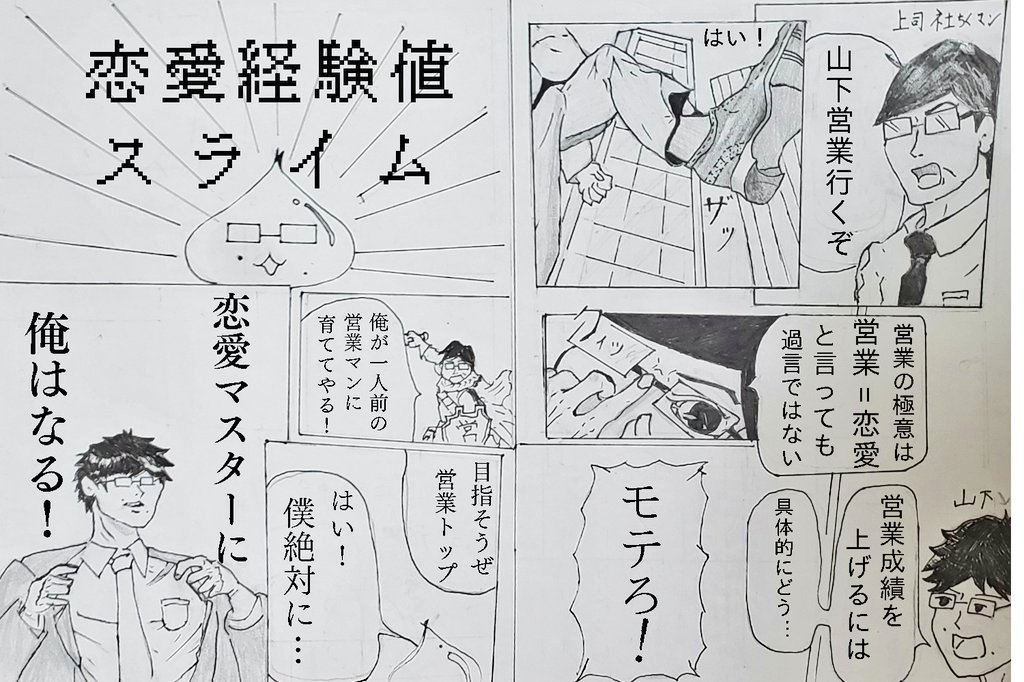 上司 社ちくマン
山下営業行くぞ
はい！
ザッ
営業の極意は
営業＝恋愛
と言っても
過言ではない
山下
営業成績を
上げるには
具体的にどう…
モテろ！
恋愛経験値
スライム
俺が一人前の
営業マンに
育ててやる！
営
目指そうぜ
営業トップ
はい！
僕絶対に…
恋愛マスターに
俺はなる！